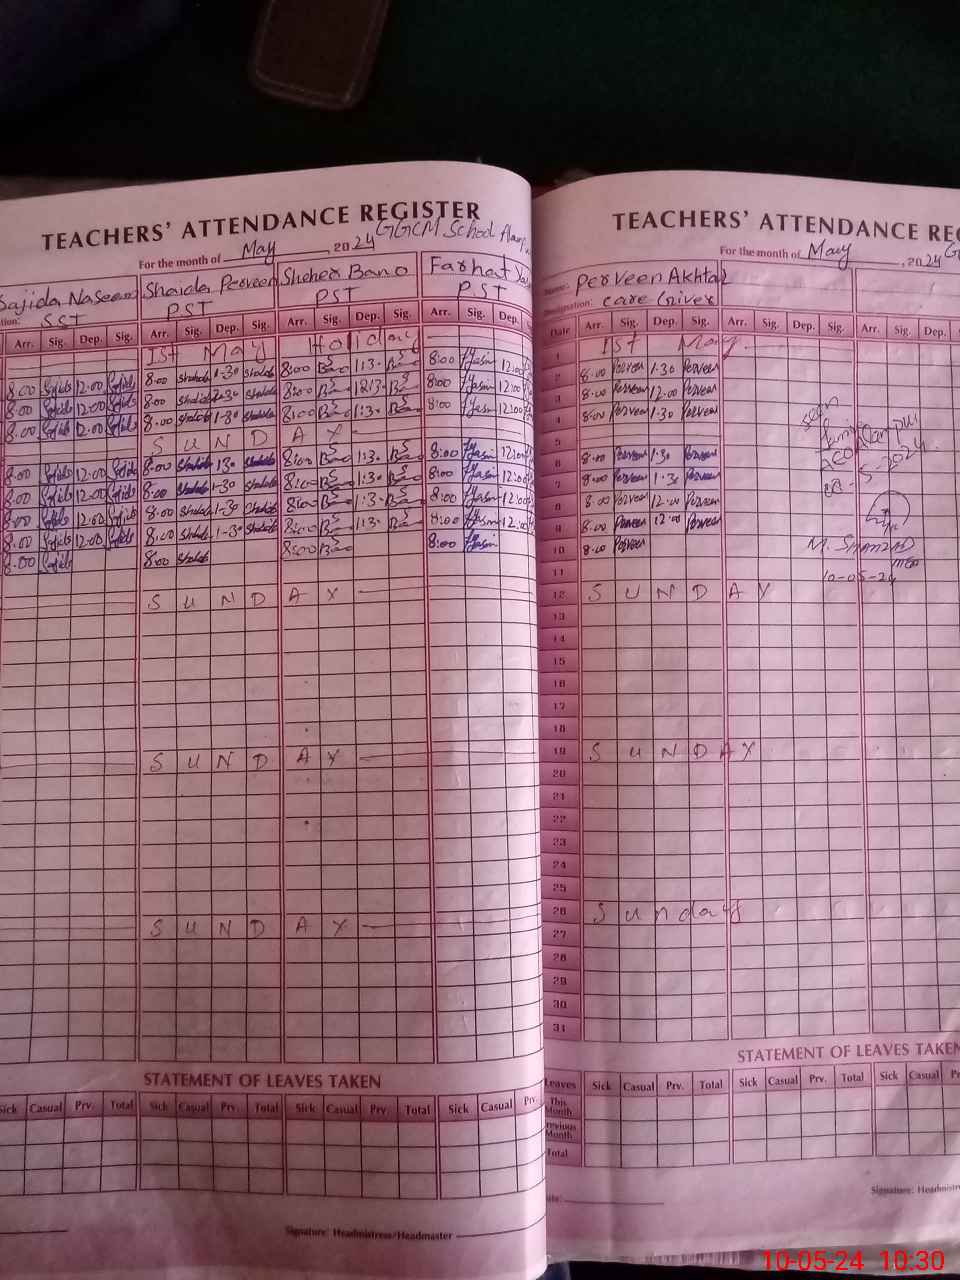 TEACHERS' ATTENDANCE REGISTER
For the month of May, 2024 GGCM School
Sajida Naseem Shaida Perveen Sheher Bano Farhat
SST PST PST PST
Arr. Sig. Dep. Sig. Arr. Sig. Dep. Sig. Arr. Sig. Dep. Sig. Arr. Sig. Dep.
1st May Holiday
8:00 12:00 8:00 Shaida 1-30 Shaida 8:00 Bano 1:3- Bano 8:00 Yasm 12:00
8:00 12:00 8:00 Shaida Shaida 8:00 Bano Bano 8:00 Yasm 12:00
8:00 12:00 8:00 Shaida 1-30 Shaida 8:00 Bano 1:3- Bano 8:00 Yasm 12:00
S U N D A Y
8:00 12:00 8:00 Shaida 1-30 Shaida 8:00 Bano 1:3- Bano 8:00 Yasm 12:00
8:00 12:00 8:00 Shaida 1-30 Shaida 8:00 Bano 1:3- Bano 8:00 Yasm 12:00
8:00 12:00 8:00 Shaida 1-30 Shaida 8:00 Bano 1:3- Bano 8:00 Yasm 12:00
8:00 12:00 8:00 Shaida 1-30 Shaida 8:00 Bano 1:3- Bano 8:00 Yasm 12:00
8:00 8:00 Shaida 8:00 Bano 8:00 Yasm
S U N D A Y
S U N D A Y
S U N D A Y
STATEMENT OF LEAVES TAKEN
Sick Casual Prv. Total Sick Casual Prv. Total Sick Casual Prv. Total Sick Casual Prv.
Signature: Headmistress/Headmaster
TEACHERS' ATTENDANCE REG
For the month of May, 2024
Name: Perveen Akhtar
Designation: Care Giver
Date Arr. Sig. Dep. Sig. Arr. Sig. Dep. Sig. Arr. Sig. Dep.
1 1st May
2 8:00 Perveen 1:30 Perveen
3 8:00 Perveen 12:00 Perveen
4 8:00 Perveen 1:30 Perveen
5
6 8:00 Perveen 1:30 Perveen
7 8:00 Perveen 1:30 Perveen
8 8:00 Perveen 12:00 Perveen
9 8:00 Perveen 12:00 Perveen
10 8:00 Perveen
11
12 S U N D A Y
13
14
15
16
17
18
19 S U N D A Y
20
21
22
23
24
25
26 Sunday
27
28
29
30
31
seen
5-2024
10-05-24
STATEMENT OF LEAVES TAKEN
Leaves Sick Casual Prv. Total Sick Casual Prv. Total Sick Casual
This Month
Previous Month
Total
Signature: Headmistre
10-05-24 10:30